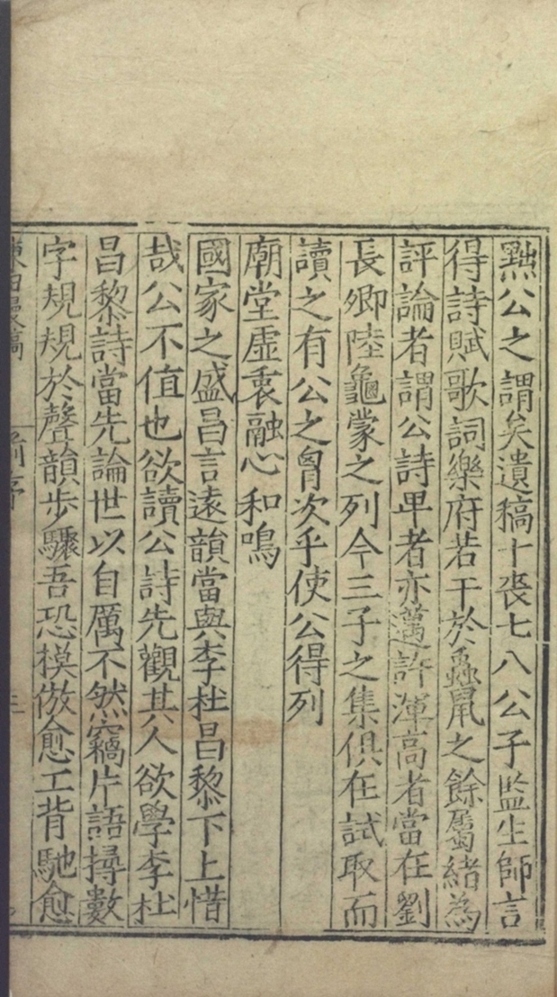 點公之謂矣遺稿十喪七八公子監生師言
得詩賦歌詞樂府若干於蟲鼠之餘屬緒為
評論者謂公詩卑者亦邁許渾高者當在劉
長卿陸龜蒙之列今三子之集俱在試取而
讀之有公之胷次乎使公得列
廟堂虛衷融心和鳴
國家之盛昌言遠韻當與李杜昌黎下上惜
哉公不值也欲讀公詩先觀其人欲學李杜
昌黎詩當先論世以自厲不然竊片語撏數
字規規於聲韻步驟吾恐模倣愈工背馳愈